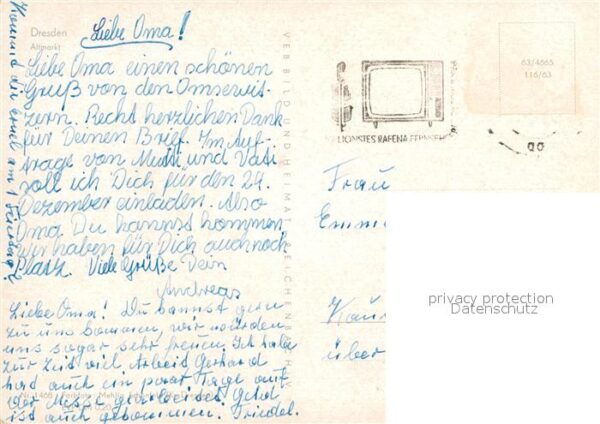 Dresden
Altmarkt
Liebe Oma!
Liebe Oma einen schönen
Gruß von den Omsewit-
zern. Recht herzlichen Dank
für Deinen Brief. Im Auf-
trage von Mutti und Vati
soll ich Dich für den 24.
Dezember einladen. Also
Oma Du kannst kommen
wir haben für Dich auch noch
Platz. Viele Grüße Dein
Andreas
Liebe Oma! Du kannst gern
zu uns kommen, wir würden
uns sogar sehr freuen. Ich habe
zur Zeit viel Arbeit. Gerhard
hat auch ein paar Tage auf
der Messe gearbeitet. Geld
ist auch gekommen. Friedel.
Kommt ein am 1. Feiertag?
VEB BILD UND HEIMAT REICHENBACH
63/4665
116/63
RAFENA FERNSEH
Frau
Emm
über
privacy protection
Datenschutz